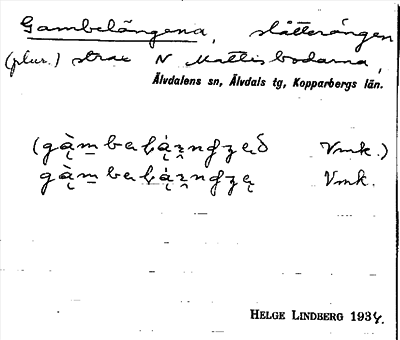 Gambelängena, slåtterängen
(plur.) strax N Mattisbodarna,
Älvdalens sn, Älvdals tg, Kopparbergs län.
Vmk.)
Vmk.
HELGE LINDBERG 1934.